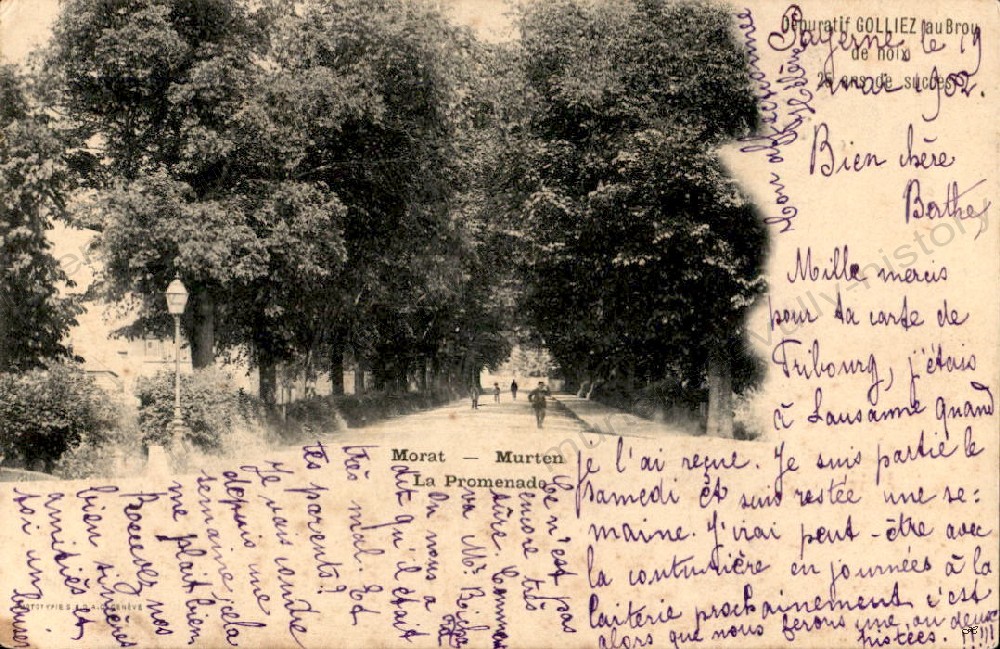 Dépuratif GOLLIEZ au Brou
de noix
25 ans de succès
Payerne, le 19
mai 1902.
Bien chère
Berthe,
Mille mercis
pour ta carte de
Fribourg, j'étais
à Lausanne quand
je l'ai reçue. Je suis partie le
samedi et suis restée une se=
maine. J'irai peut-être avec
la couturière en journées à la
laiterie prochainement, c'est
alors que nous ferons une ou deux
pistées. !!!!
Ce n'est pas
encore très
sûre. Comment
va Mr
on nous a
dit qu'il était
très mal. Et
tes parents?
Je vais coudre
depuis une
semaine, cela
me plaît bien
Recevez nos
bien sincères
amitiés et
toi un baiser
Ton affectionnée
Hélène
Morat — Murten
La Promenade
PHOTOTYPIE S.A.D.A. GENÈVE
vully-history